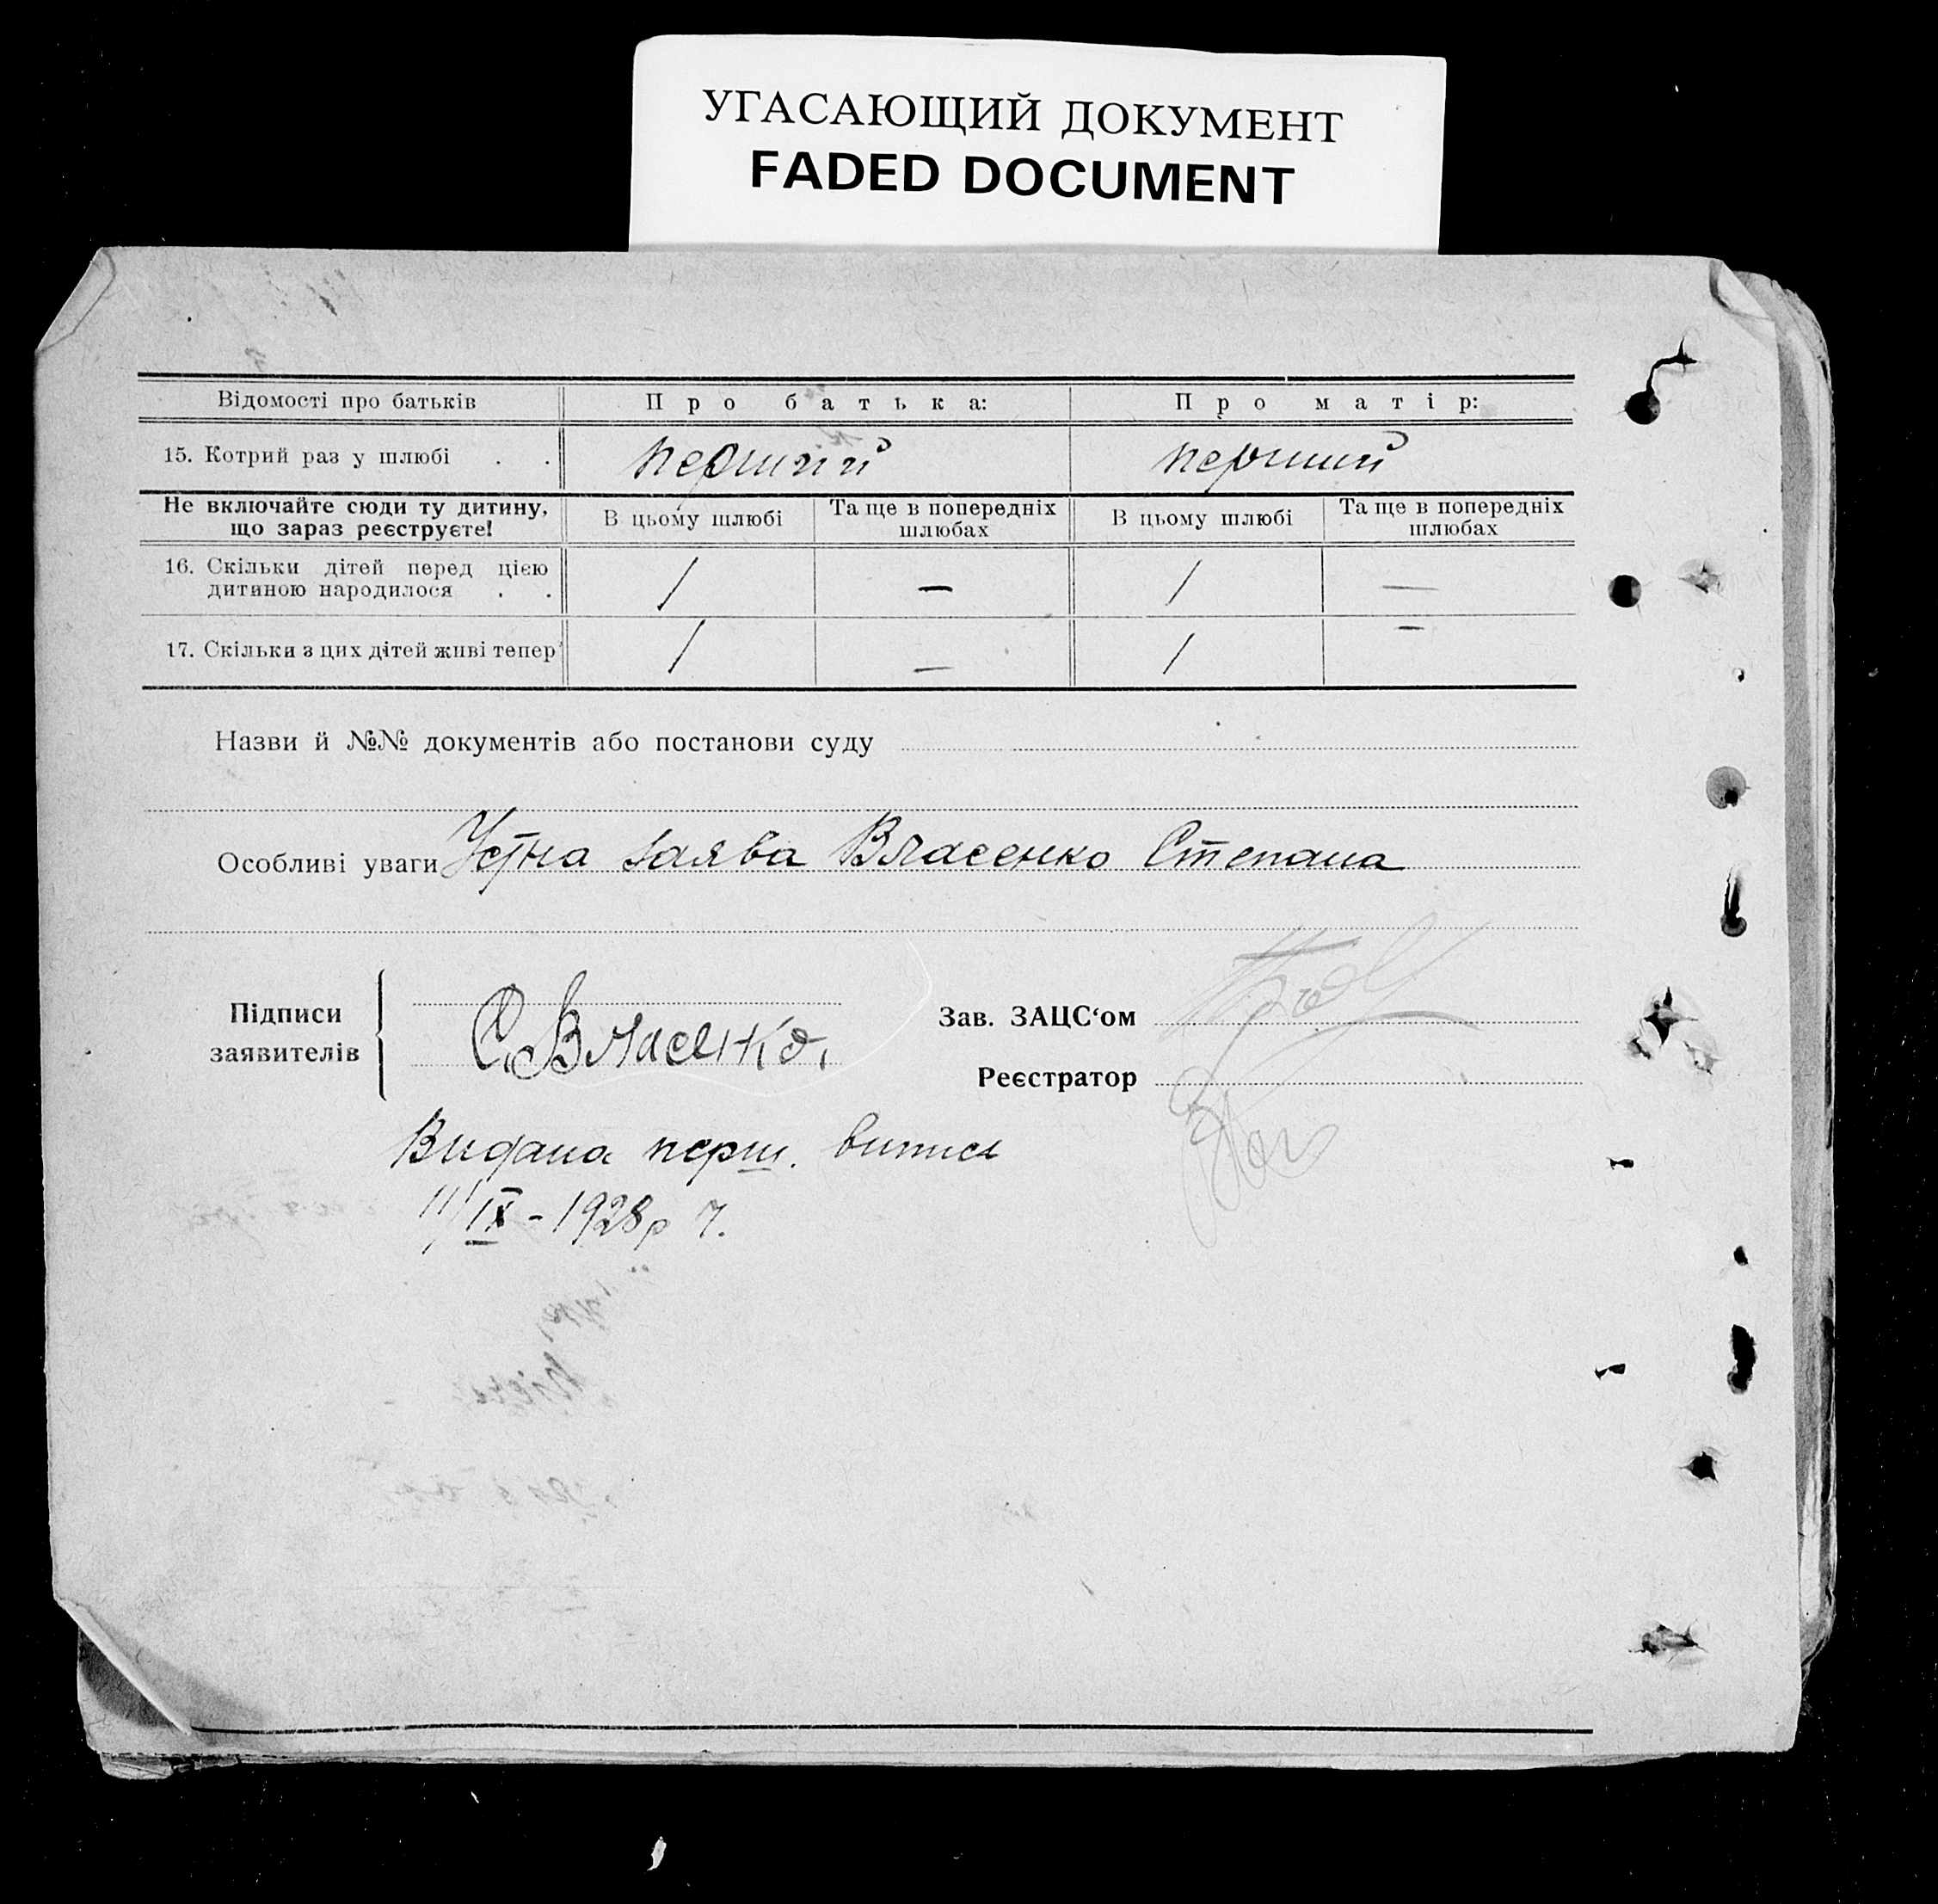 УГАСАЮЩИЙ ДОКУМЕНТ
FADED DOCUMENT
Відомості про батьків Про батька: Про матір:
15. Котрий раз у шлюбі . . перший перший
Не включайте сюди ту дитину, що зараз реєструєте! В цьому шлюбі Та ще в попередніх шлюбах В цьому шлюбі Та ще в попередніх шлюбах
16. Скільки дітей перед цією дитиною народилося . . / — / —
17. Скільки з цих дітей живі тепер / — / —
Назви й №№ документів або постанови суду
Особливі уваги Устна заява Власенко Степана
Підписи заявителів С. Власенко.
Зав. ЗАЦС‘ом
Реєстратор
Видана перш. витись
11/IX - 1928 р